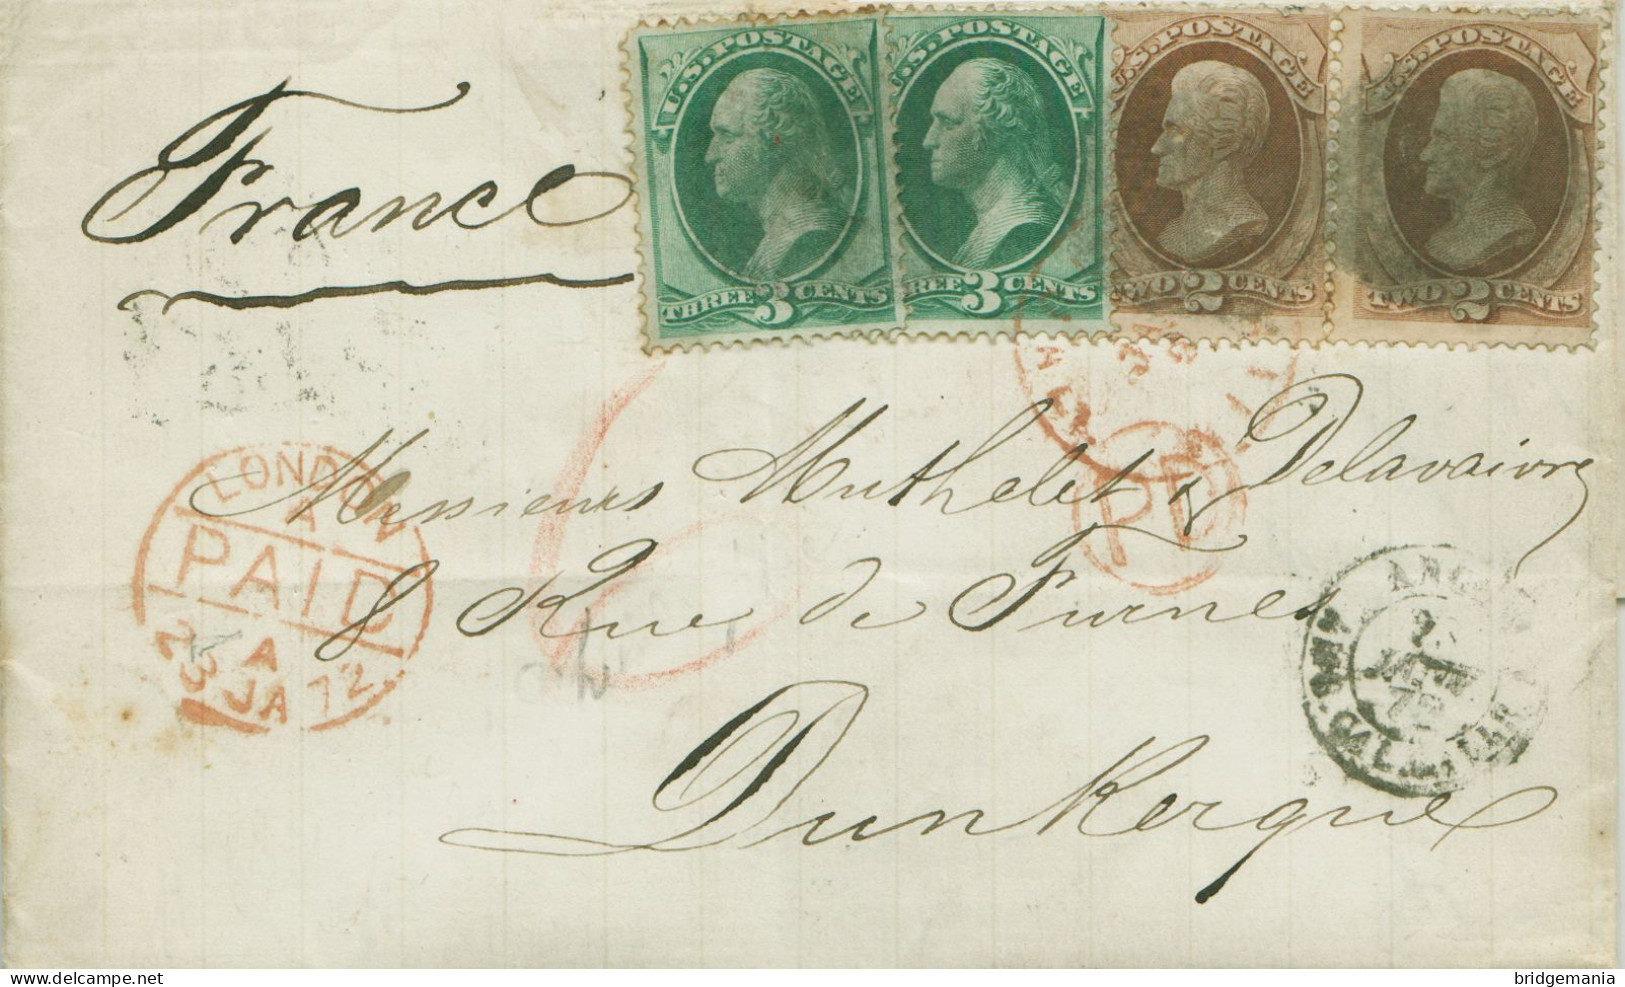 U.S. POSTAGE
THREE 3 CENTS
U.S. POSTAGE
REE 3 CENTS
U.S. POSTAGE
TWO 2 CENTS
U.S. POSTAGE
TWO 2 CENTS
France
Messieurs Muthelet & Delavaivre
8 Rue de Furnes
Dunkerque
LONDON
A
PAID
A
23 JA 72
6
PD
delcampe.net
bridgemania